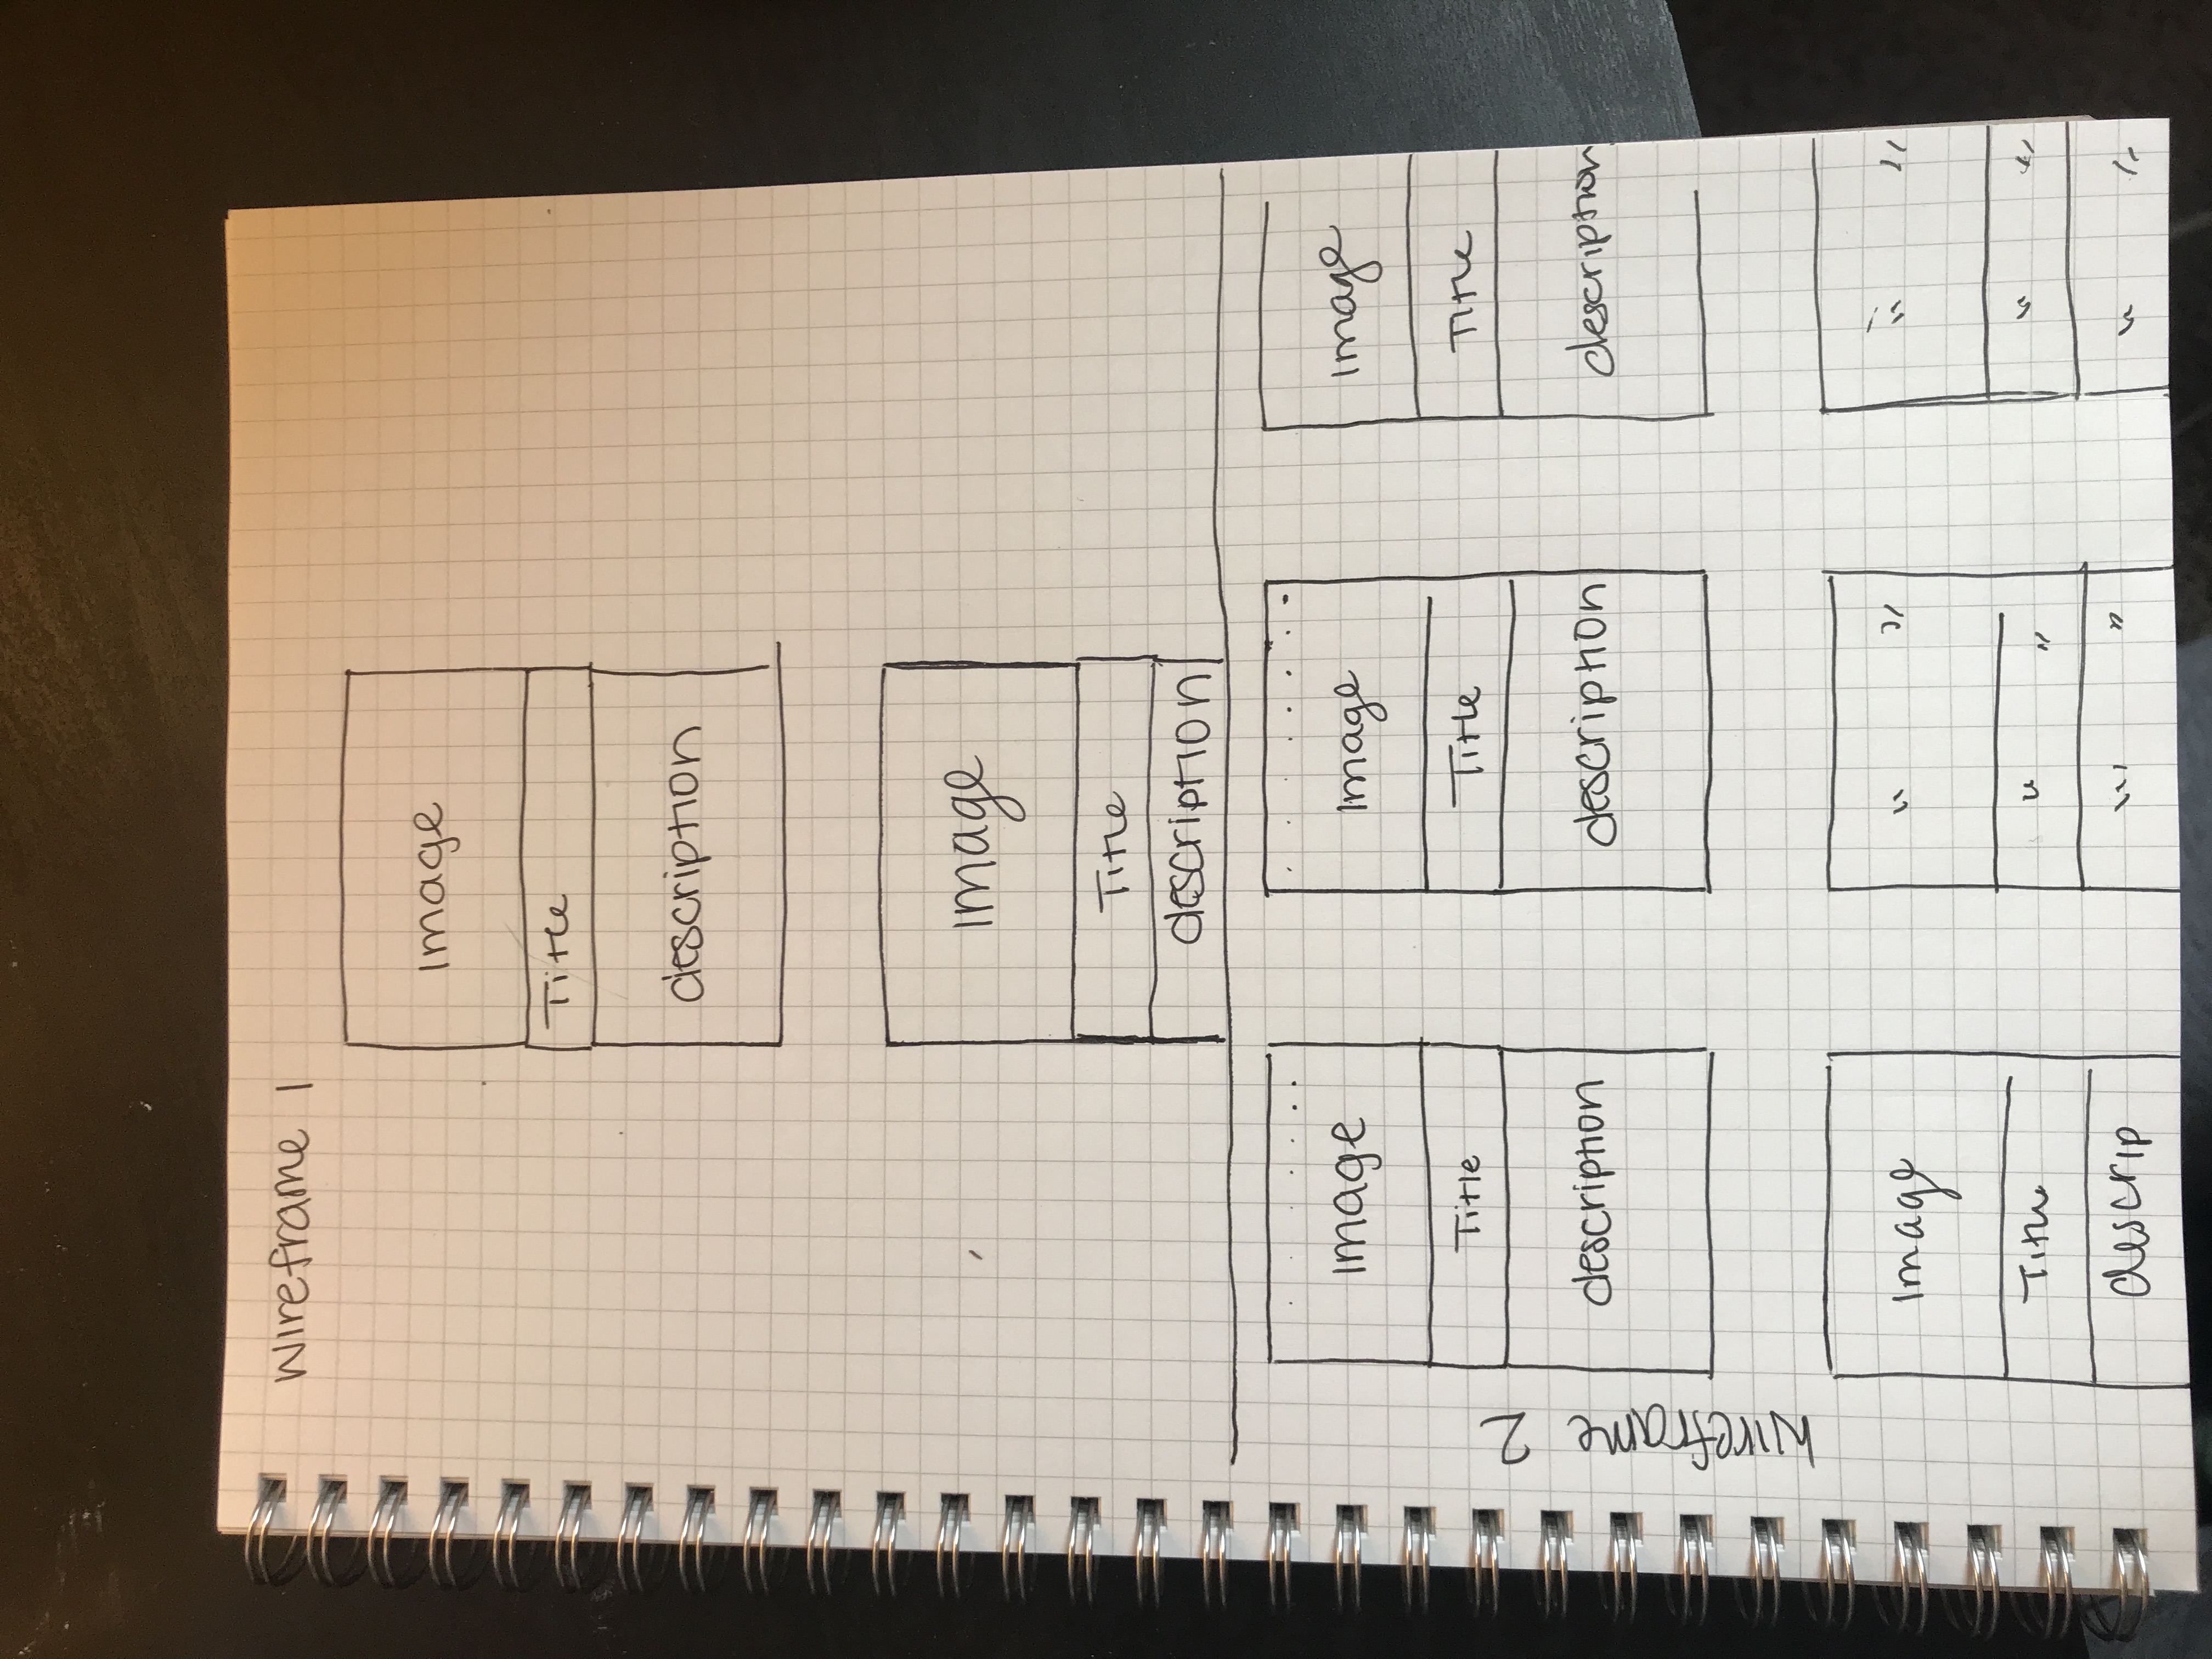 Wireframe 1
Image
Title
description
Image
Title
description
Wireframe 2
Image Image Image
Title Title Title
description description description
Image " " " "
Title " " " "
descrip " " " "